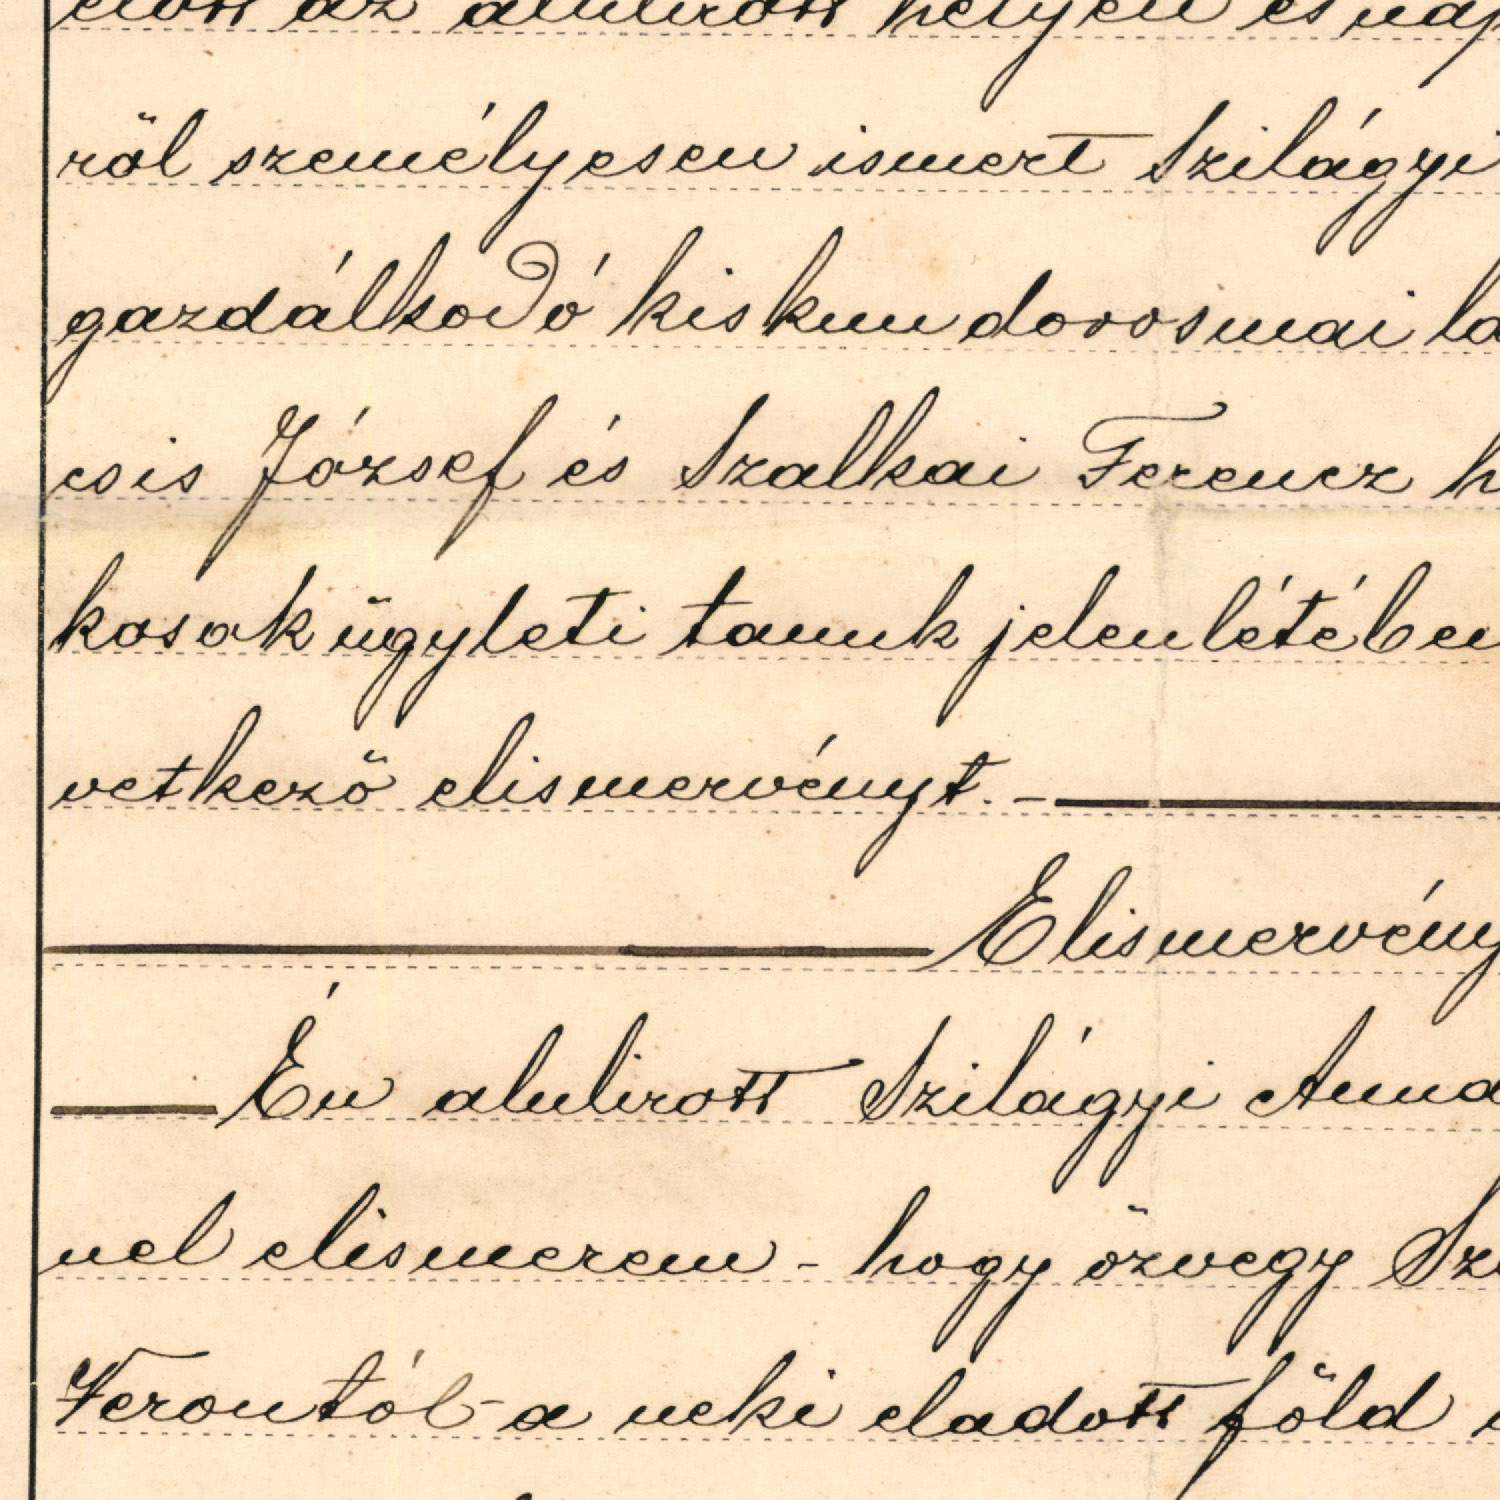 előtt az alulirott helyen és nap
ről személyesen ismert Szilágyi
gazdálkodó kiskundorosmai la
csis József és Szalkai Ferencz h
kosok ügyleti tanuk jelenlétében
vetkező elismervényt. -
Elismervény
Én alulirott Szilágyi Anna
nel elismerem - hogy özvegy Szi
Ferontól - a neki eladott föld